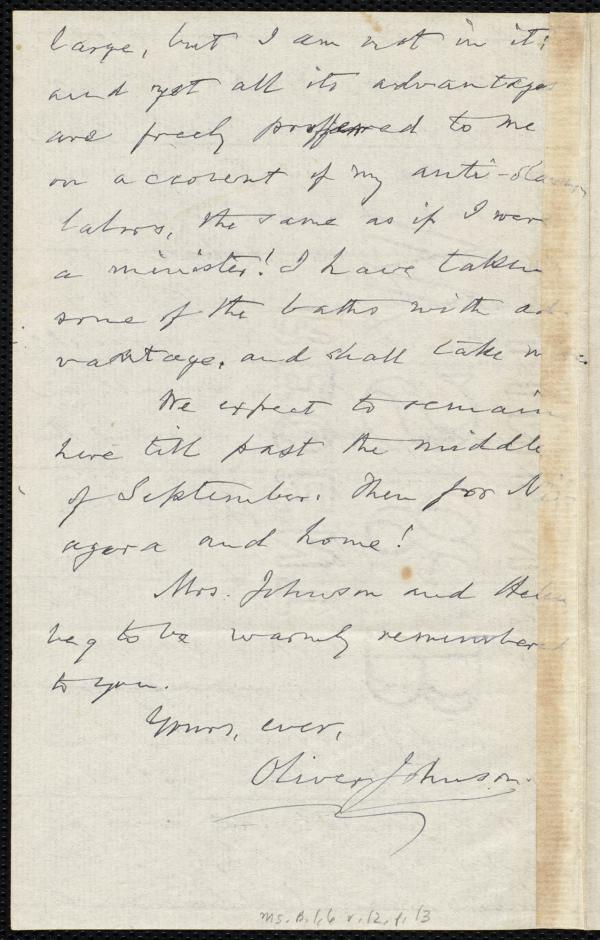 large, but I am not in it;
and yet all its advantages
are freely proffered to me
on account of my anti-slavery
labors, the same as if I were
a minister! I have taken
some of the baths with ad-
vantage, and shall take more.
We expect to remain
here till past the middle
of September. Then for Ni-
agara and home!
Mrs. Johnson and Helen
beg to be warmly remembered
to you.
Yours, ever,
Oliver Johnson.
Ms. B.1.6 v.12, p.13